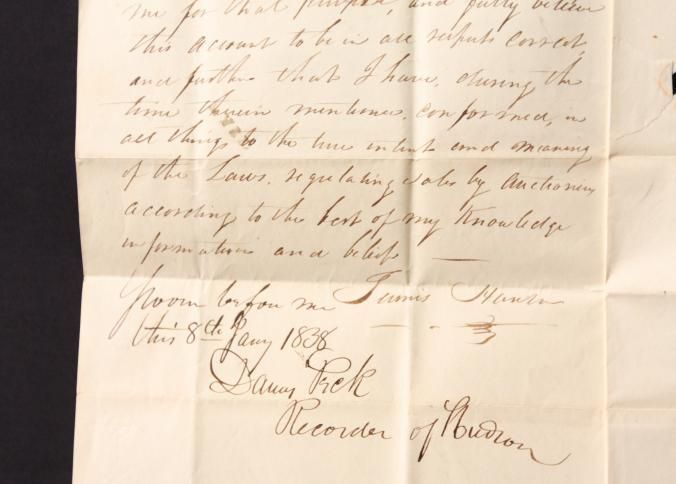 me for that purpose, and fully believe
this account to be in all respects correct,
and further that I have, during the
time therein mentioned, conformed, in
all things to the true intent and meaning
of the Laws, regulating Sales by Auctioneers
according to the best of my Knowledge
information and belief
Sworn before me Tunis
this 8th Jany 1838
Peck
Recorder of Hudson